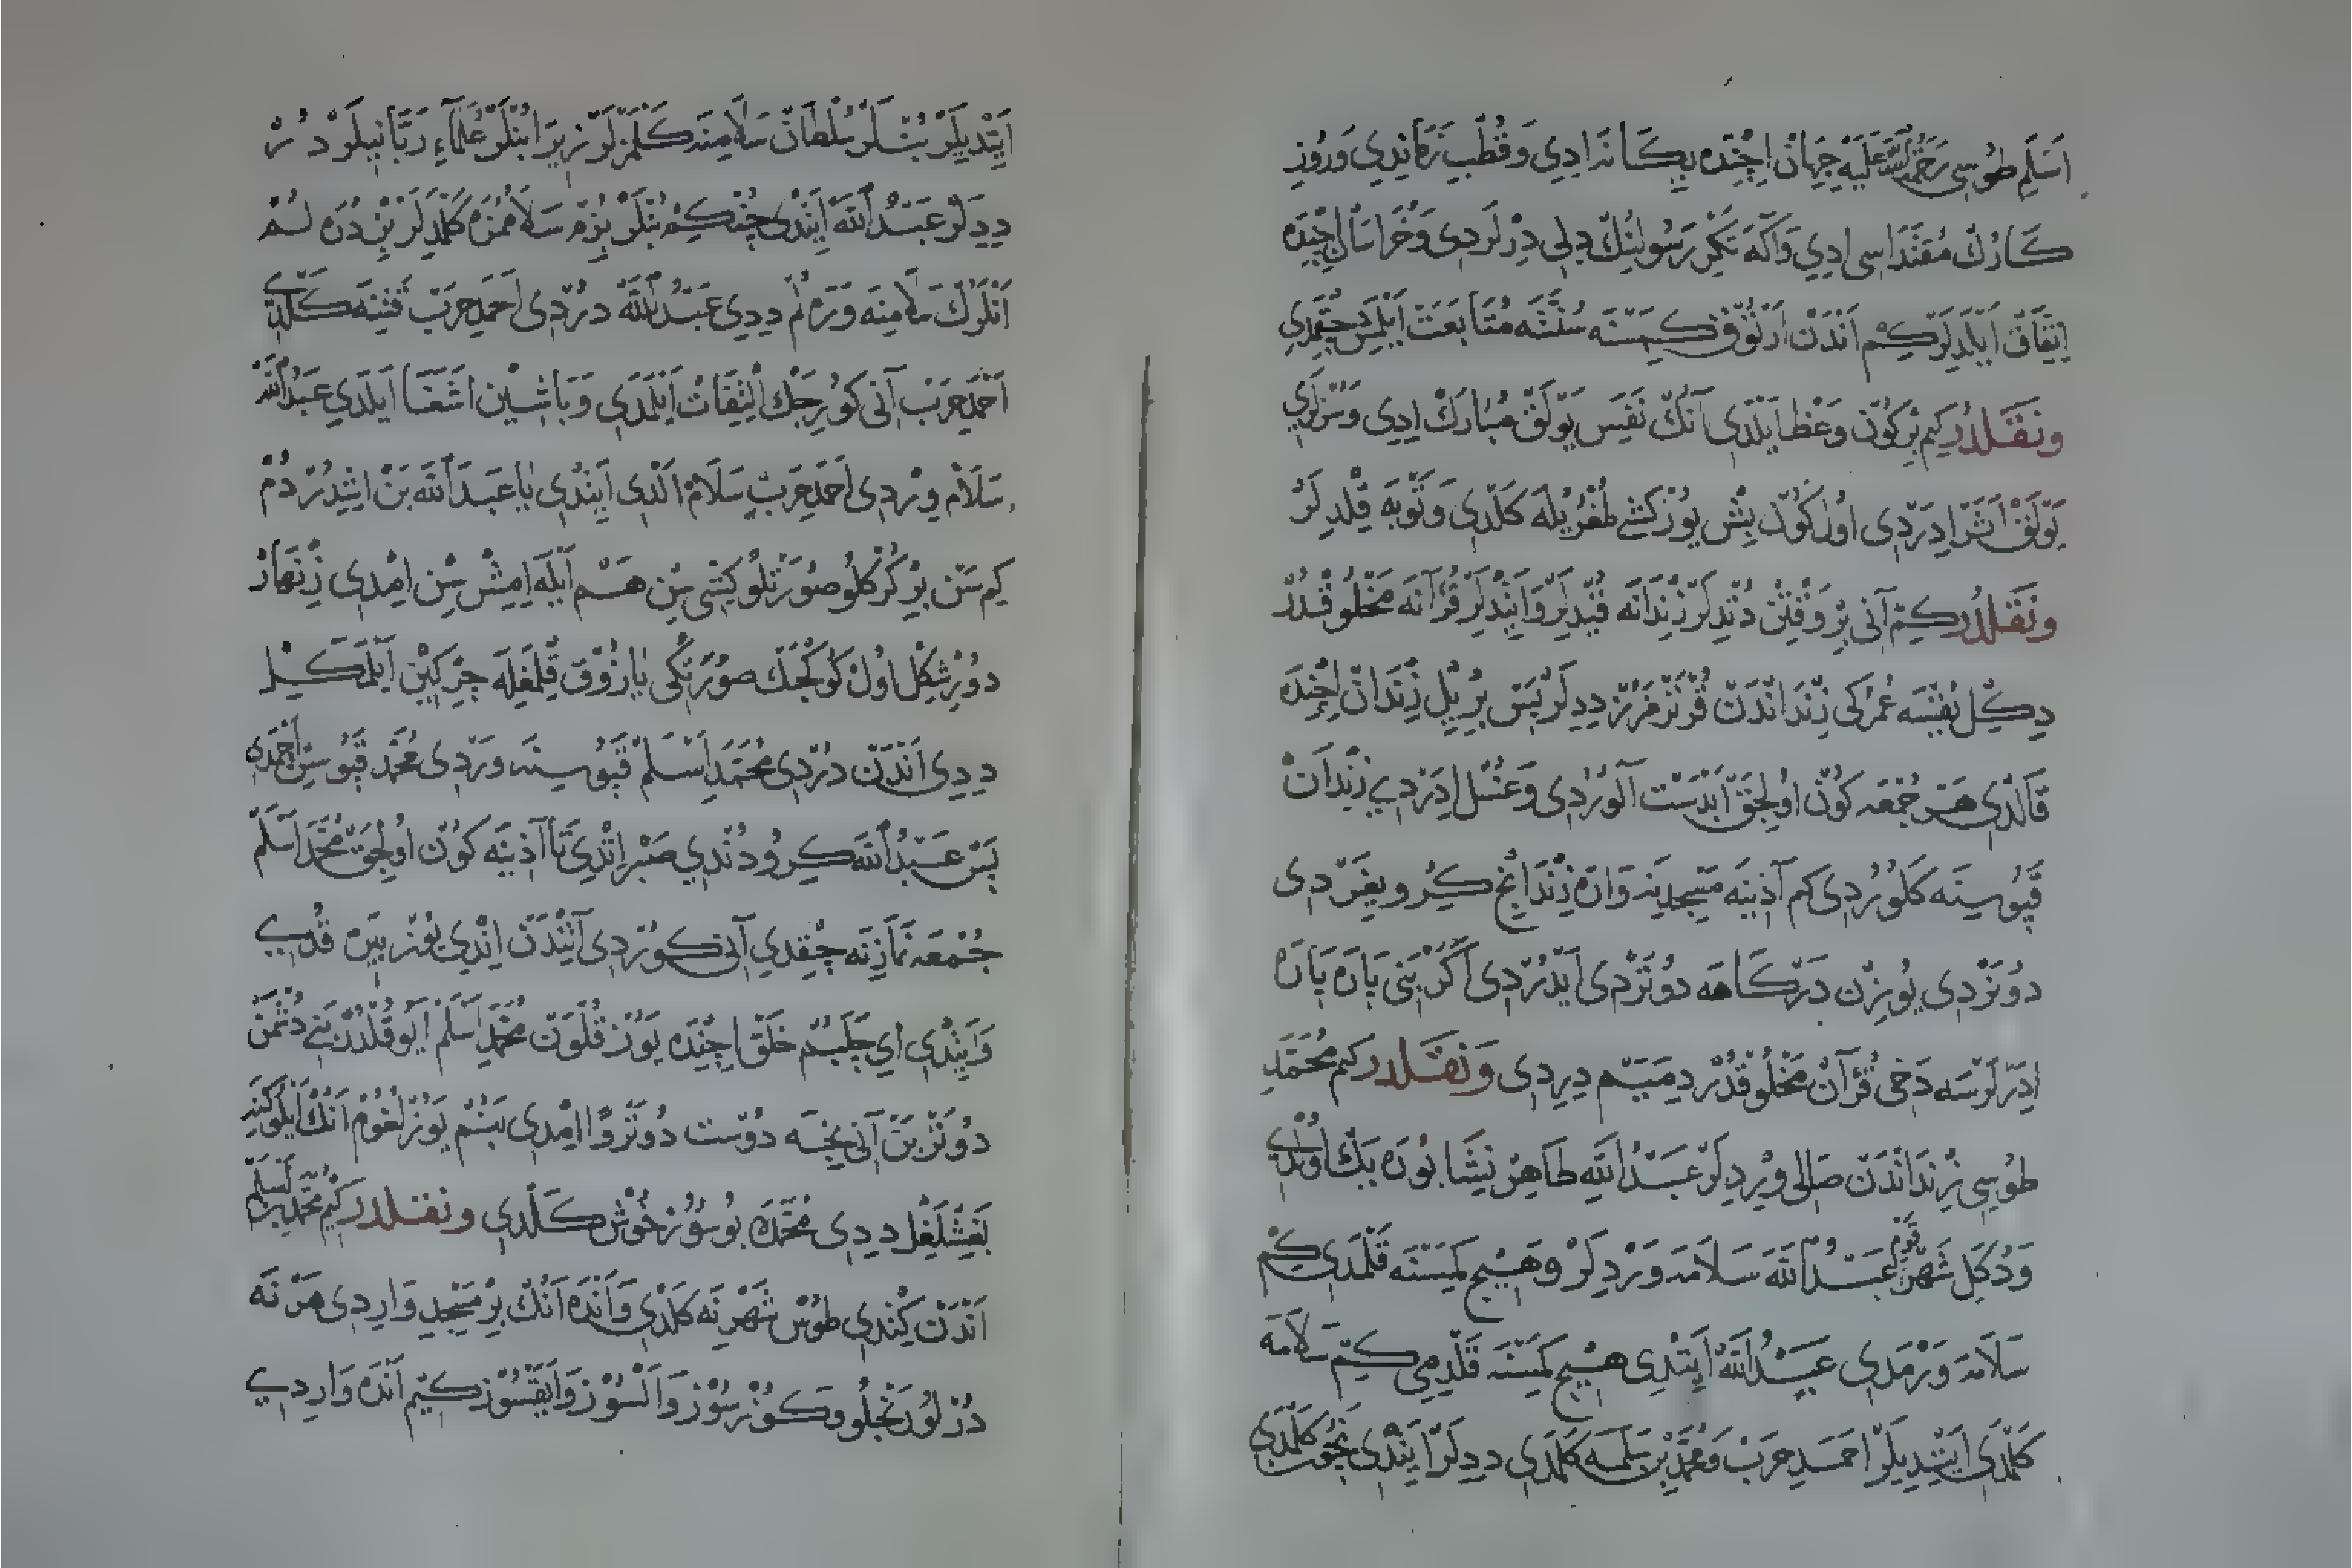 اسلم طوسی رحمة الله علیه جهان اچنده یکانه ادی و قطب زمانیدی و روز
کارك مقتداسی ادی واکه تکری رسولنك دلی دیرلردی و خراسان اچنده
اتفاق ایلدیلر کم اندن ارتوق کمسنه سنته متابعت ایلمیش دکلدی
ونقلدر کم بر کون وعظ ایلدی آنك نفس یولق مبارك ادی و سزلری
یولق اثر ادردی اول کون بش یوز کشی طغریله کلدی و توبه قلدیلر
ونقلدر کم آنی بر وقتن دتدلر زندانه قیدلر و ایتدلر قرآنه مخلوقدر
دکل نفسه عمرکی زنداندن قرترمزز ددلر پس بر ییل زندان اچنده
قالدی هر جمعه کون اولیجق آبدست آلوردی و غسل ادردی زندان
قپوسینه کلوردی کم آذینه مسجدینه واره زندانجی کرو یغردی
دونردی یوزن درکاهه دوتردی ایدردی اکر بنی پاره پاره
ادرلرسه دخی قرآن مخلوقدر دمیم دردی ونقلدر کم محمد
طوسی زنداندن صالی ویردلر عبد الله طاهر نیشابوره بك اولدی
ودکل شهر قوم عبد الله سلامه وردلر و هیچ کمسنه قلمدی کم
سلامه ورمدی عبد الله ایتدی هیچ کمسنه قلدمی کم سلامه
کلمدی ایتدیلر احمد حرب و محمد بن سلمه کلمدی ددلر ایتدی نیچون کلمدی
ایتدیلر بنلر سلطان سلامنه کلمزلر زیرا بنلر علماء ربانیلردر
ددلر عبد الله ایتدی چونکم بنلر بزم سلاممزه کلمدلر بز دره لم
انلروك سلامینه وره لم ددی عبد الله دردی احمد حرب قتینه کلدی
احمد حرب آنی کوریجك التفات ایلمدی و باشین اشغا ایلدی عبد الله
سلام وردی احمد حرب سلام الدی ایتدی یا عبد الله بن اشدردم
کم سن بر کرکلو صورتلو کشی سن هم ایله امش سن امدی زنهار
دورشکل اول کوکچك صورتکی یازوق قلمغله چرکین ایلمکیل
ددی اندن دردی محمد اسلم قپوسینه وردی محمد قپوسن اچمدی
پس عبد الله کرو دوندی صبر اتدی تا آذینه کون اولیجق محمد اسلم
جمعه نمازنه چقدی آنی کوردی آتندن اندی یوزن یره قدی
و ایتدی ای چلبم خلق اچنده یوز قلوون محمد اسلم ایو قلدر بنی دشمن
دوتر بن آنی نجه دوست دوترو امدی بنم یوزلغوم انك ایلوکنه
بغشلغل ددی محمده بو سوز خوش کلدی ونقلدر کم محمد بن اسلم
اندن کتدی طوس شهرنه کلدی و آنده آنك بر مسجد واردی هر نه
درلو رنجلو و کوزسوز و السوز و ایقسوز کم انده واردی